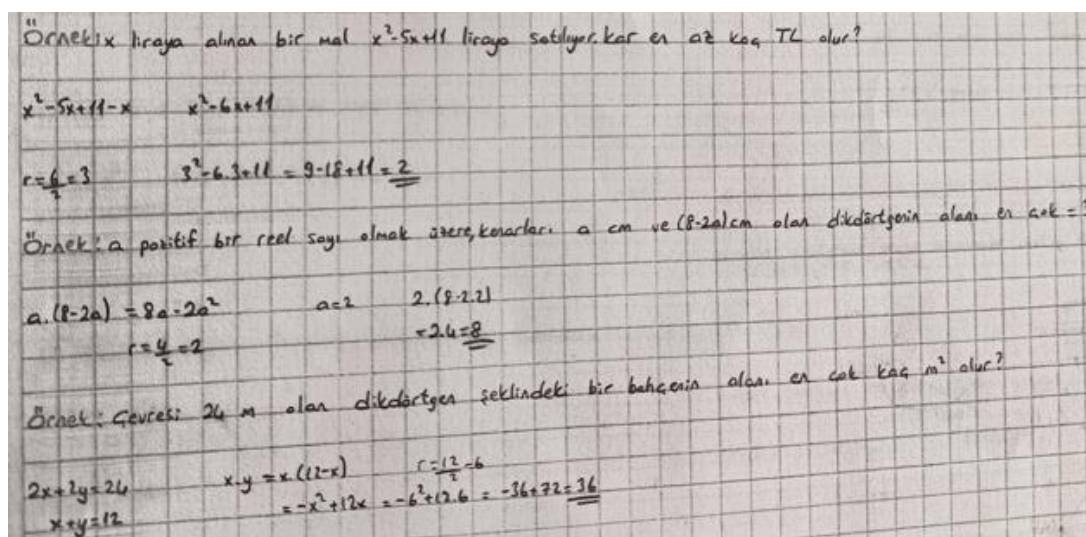 Örnek: x liraya alınan bir mal x²-5x+11 liraya satılıyor. kar en az kaç TL olur?
x²-5x+11-x x²-6x+11
r=6/2=3 3²-6.3+11 = 9-18+11=2
Örnek: a pozitif bir reel sayı olmak üzere, kenarları a cm ve (8-2a)cm olan dikdörtgenin alanı en çok = ?
a.(8-2a) = 8a-2a² a=2 2.(8-2.2)
r=4/2=2 =2.4=8
Örnek: Çevresi 24 m olan dikdörtgen şeklindeki bir bahçenin alanı en çok kaç m² olur?
2x+2y=24 x.y = x.(12-x) r=12/2=6
x+y=12 = -x²+12x = -6²+12.6 = -36+72=36